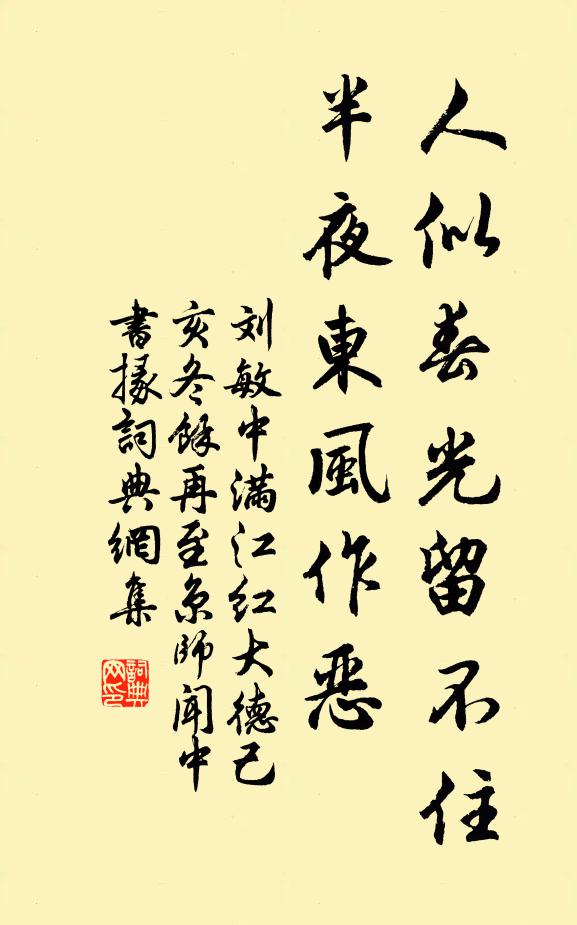 人似春光留不住
半夜東風作惡
刘敏中满江红大德己
亥冬餘再至京師聞中
書掾詞典網集
詞典网印